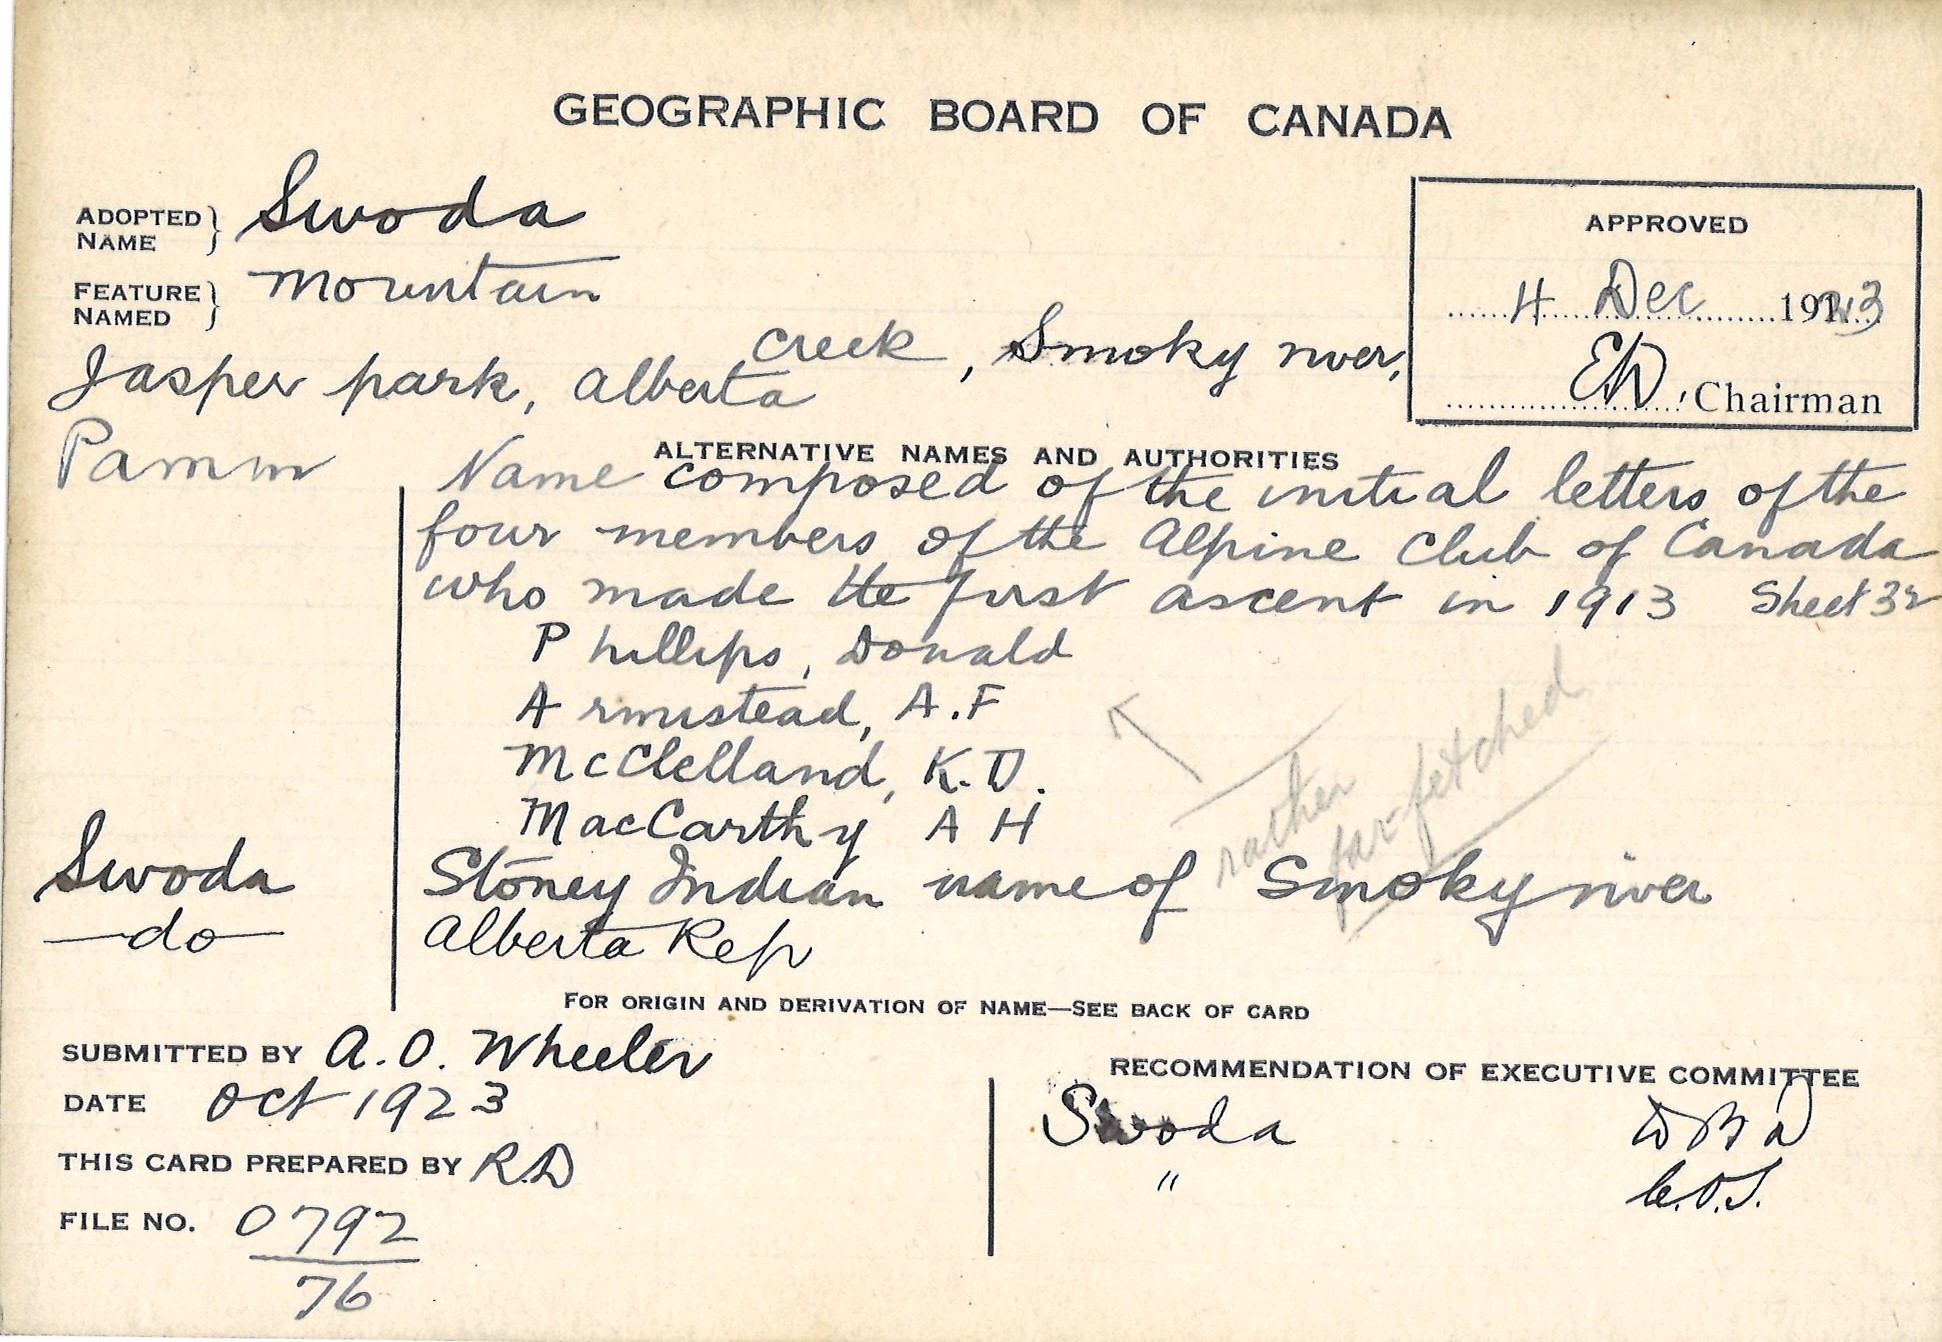 GEOGRAPHIC BOARD OF CANADA
ADOPTED NAME } Swoda
FEATURE NAMED } Mountain
creek, Smoky river,
Jasper park, Alberta
APPROVED
4 Dec 1923
Chairman
ALTERNATIVE NAMES AND AUTHORITIES
Pamm
Name composed of the initial letters of the
four members of the Alpine Club of Canada
who made the first ascent in 1913 Sheet 32
Phillips, Donald
Armistead, A.F
McClelland, K.D.
MacCarthy A H
rather
far-fetched
Swoda Stoney Indian name of Smoky river
do Alberta Rep
FOR ORIGIN AND DERIVATION OF NAME—SEE BACK OF CARD
SUBMITTED BY A.O. Wheeler
DATE Oct 1923
THIS CARD PREPARED BY R.D
FILE NO. 0792
76
RECOMMENDATION OF EXECUTIVE COMMITTEE
Swoda D B D
" C.O.S.